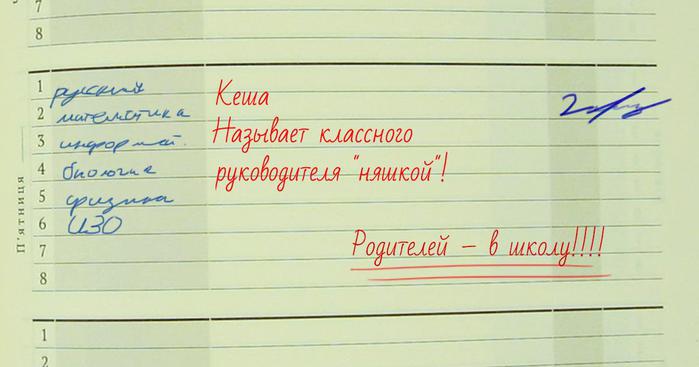 7
8
П'ятниця
1 русский
2 математика
3 информат.
4 биология
5 физика
6 ИЗО
7
8
Кеша
Называет классного
руководителя "няшкой"!
Родителей – в школу!!!!
1
2